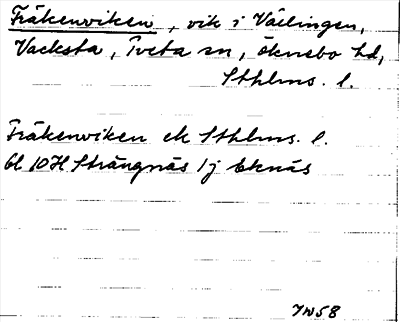 Fräkenviken, vik i Vällingen,
Vacksta, Tveta sn, Öknebo hd,
Sthlms. l.
Fräkenviken ek Sthlms. l.
bl 10H Strängnäs 1j Eknäs
JW58